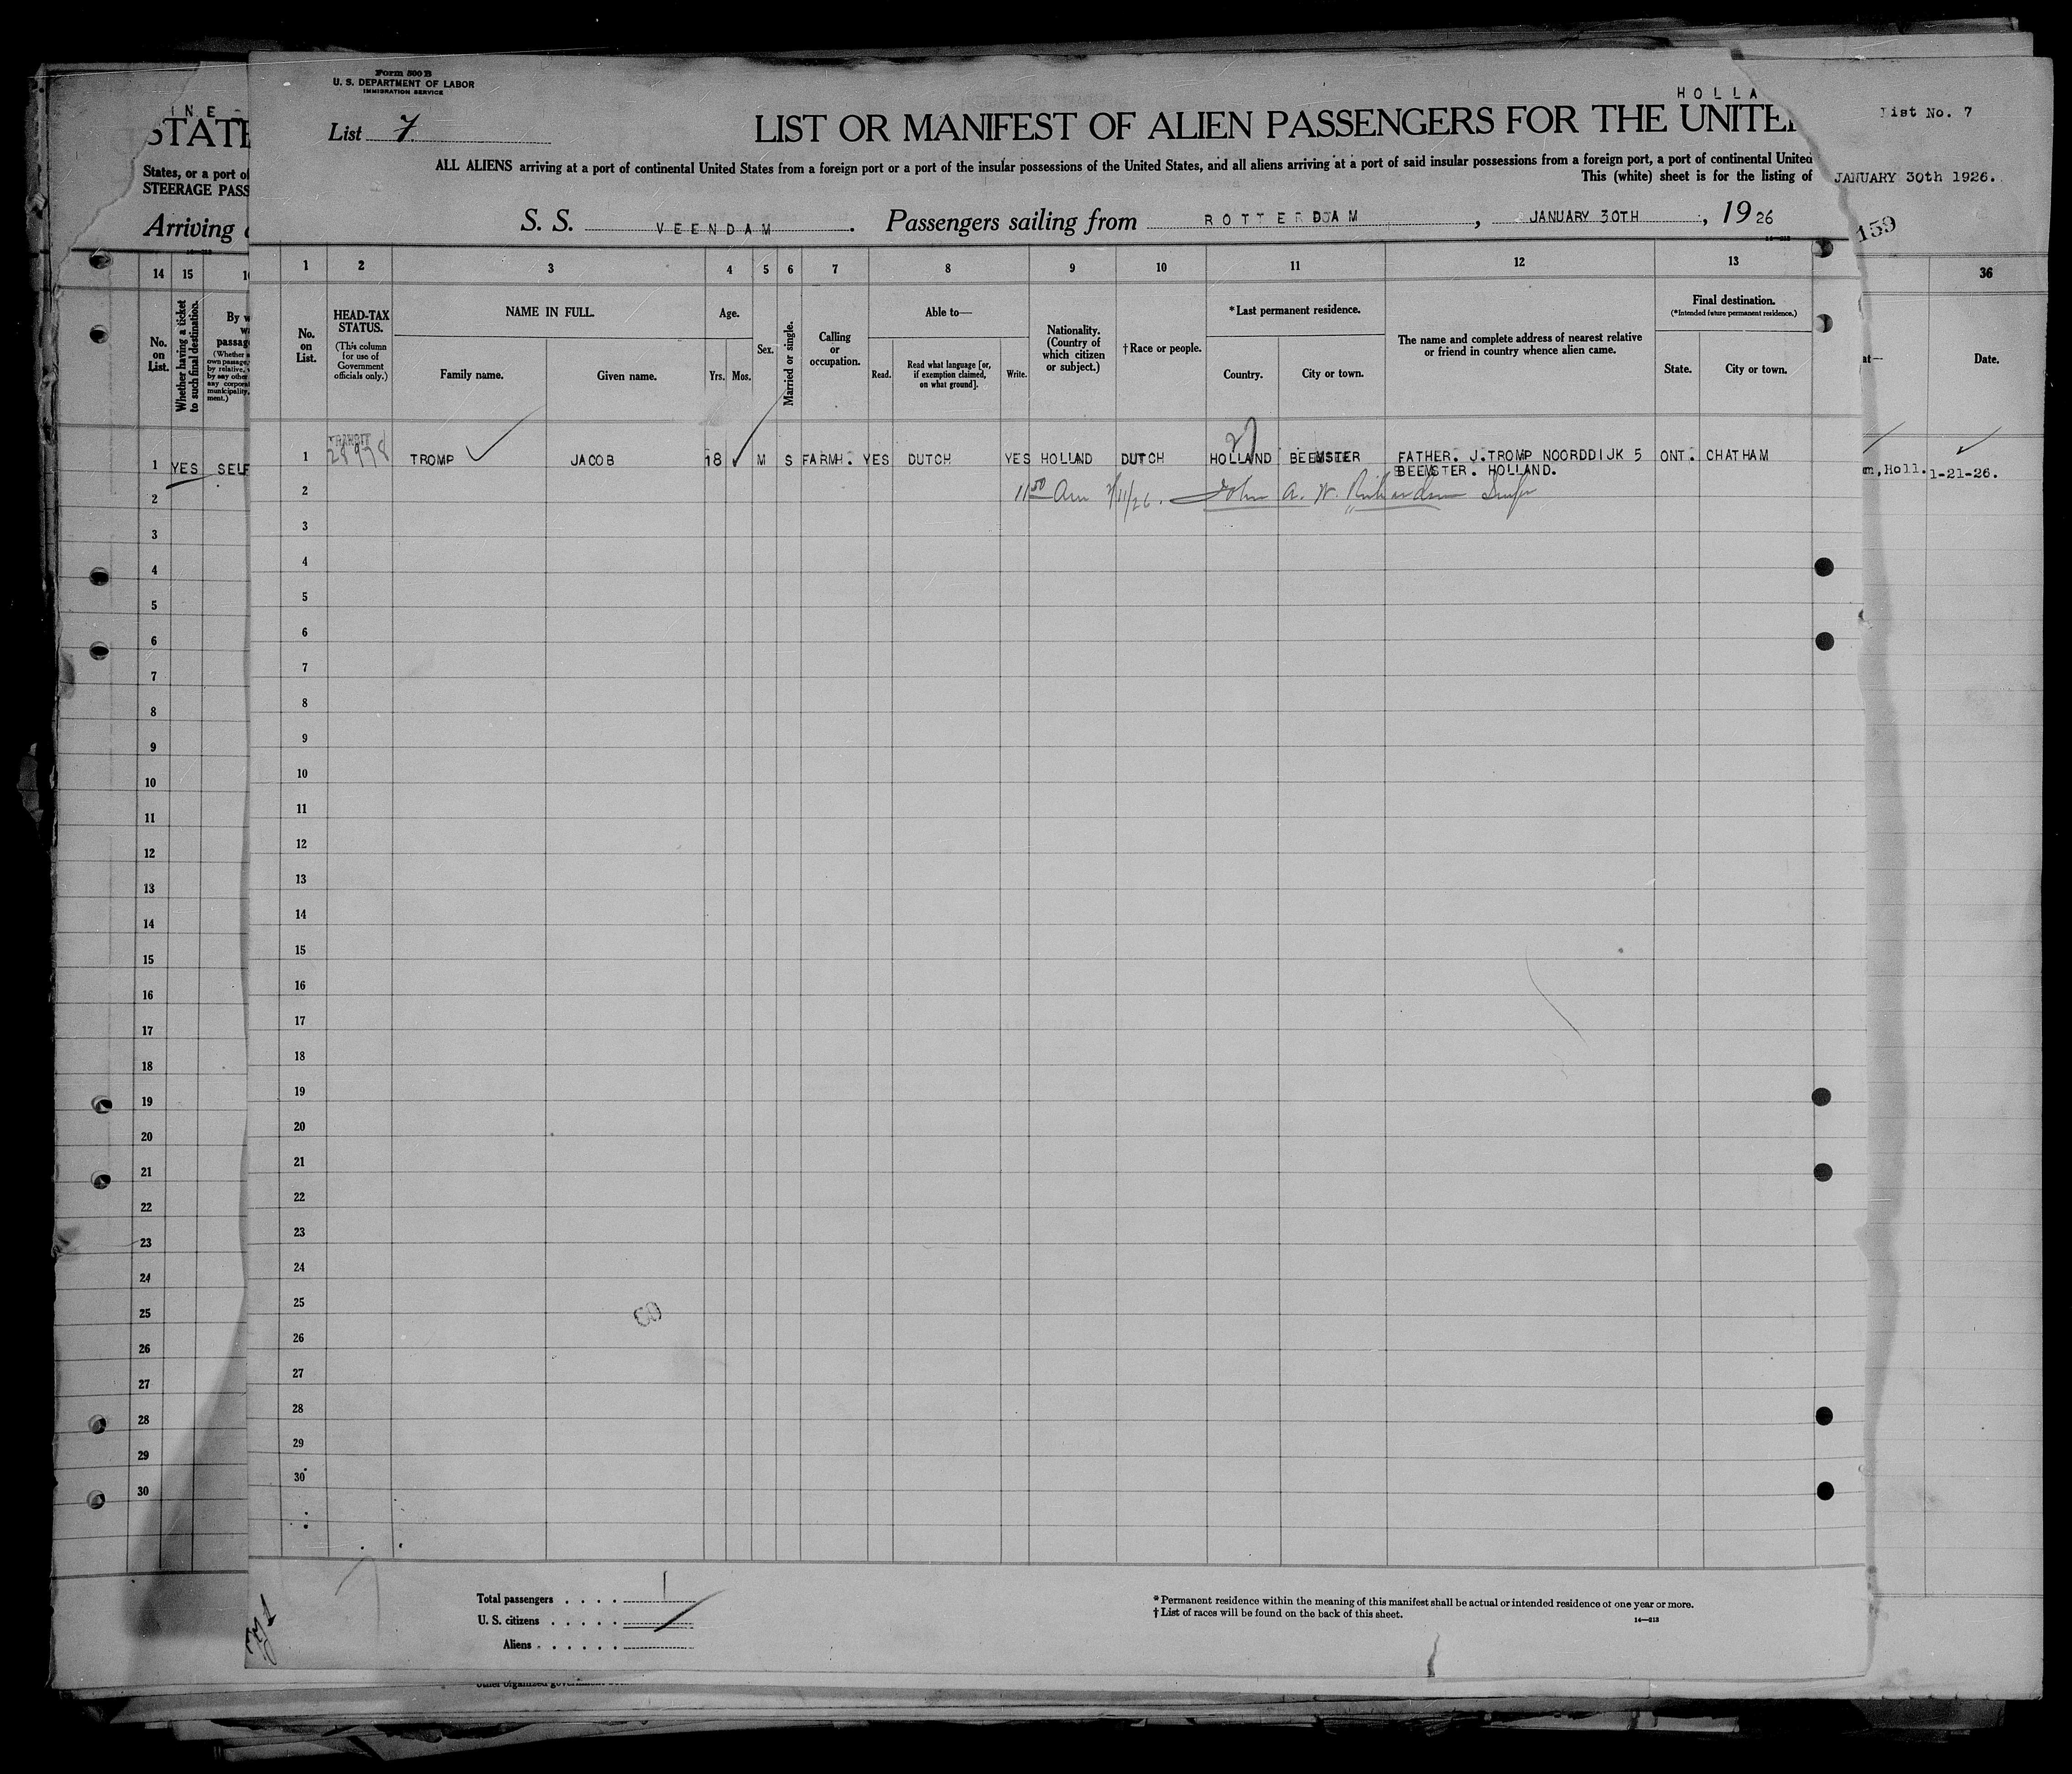 Form 500 B
U. S. DEPARTMENT OF LABOR
IMMIGRATION SERVICE
List 7
HOLLA
LIST OR MANIFEST OF ALIEN PASSENGERS FOR THE UNITE
ALL ALIENS arriving at a port of continental United States from a foreign port or a port of the insular possessions of the United States, and all aliens arriving at a port of said insular possessions from a foreign port, a port of continental United
This (white) sheet is for the listing of
S. S. VEENDAM. Passengers sailing from ROTTERDAM, JANUARY 30TH, 19 26
INE
STATE
States, or a port of
STEERAGE PASS
Arriving
List No. 7
JANUARY 30th 1926.
159
14 15
1 2 3 4 5 6 7 8 9 10 11 12 13
36
No. on List.
Whether having a ticket to such final destination.
No. on List.
HEAD-TAX STATUS.
(This column for use of Government officials only.)
NAME IN FULL.
Family name.
Given name.
Age.
Yrs. Mos.
Sex.
Married or single.
Calling or occupation.
Able to—
Read.
Read what language [or, if exemption claimed, on what ground].
Write.
Nationality. (Country of which citizen or subject.)
†Race or people.
*Last permanent residence.
Country.
City or town.
The name and complete address of nearest relative or friend in country whence alien came.
Final destination.
(*Intended future permanent residence.)
State.
City or town.
Date.
1 YES SELF
1 TRANSIT TROMP JACOB 18 M S FARMH. YES DUTCH YES HOLLAND DUTCH HOLLAND BEEMSTER FATHER. J.TROMP NOORDDIJK 5 ONT. CHATHAM
BEEMSTER. HOLLAND.
m,Holl. 1-21-26.
2 11 50 Am 2/11/26. John A. W. Richardson
3
4
5
6
7
8
9
10
11
12
13
14
15
16
17
18
19
20
21
22
23
24
25
26
27
28
29
30
2
3
4
5
6
7
8
9
10
11
12
13
14
15
16
17
18
19
20
21
22
23
24
25
26
27
28
29
30
Total passengers 1
U. S. citizens
Aliens
*Permanent residence within the meaning of this manifest shall be actual or intended residence of one year or more.
†List of races will be found on the back of this sheet.
14—213